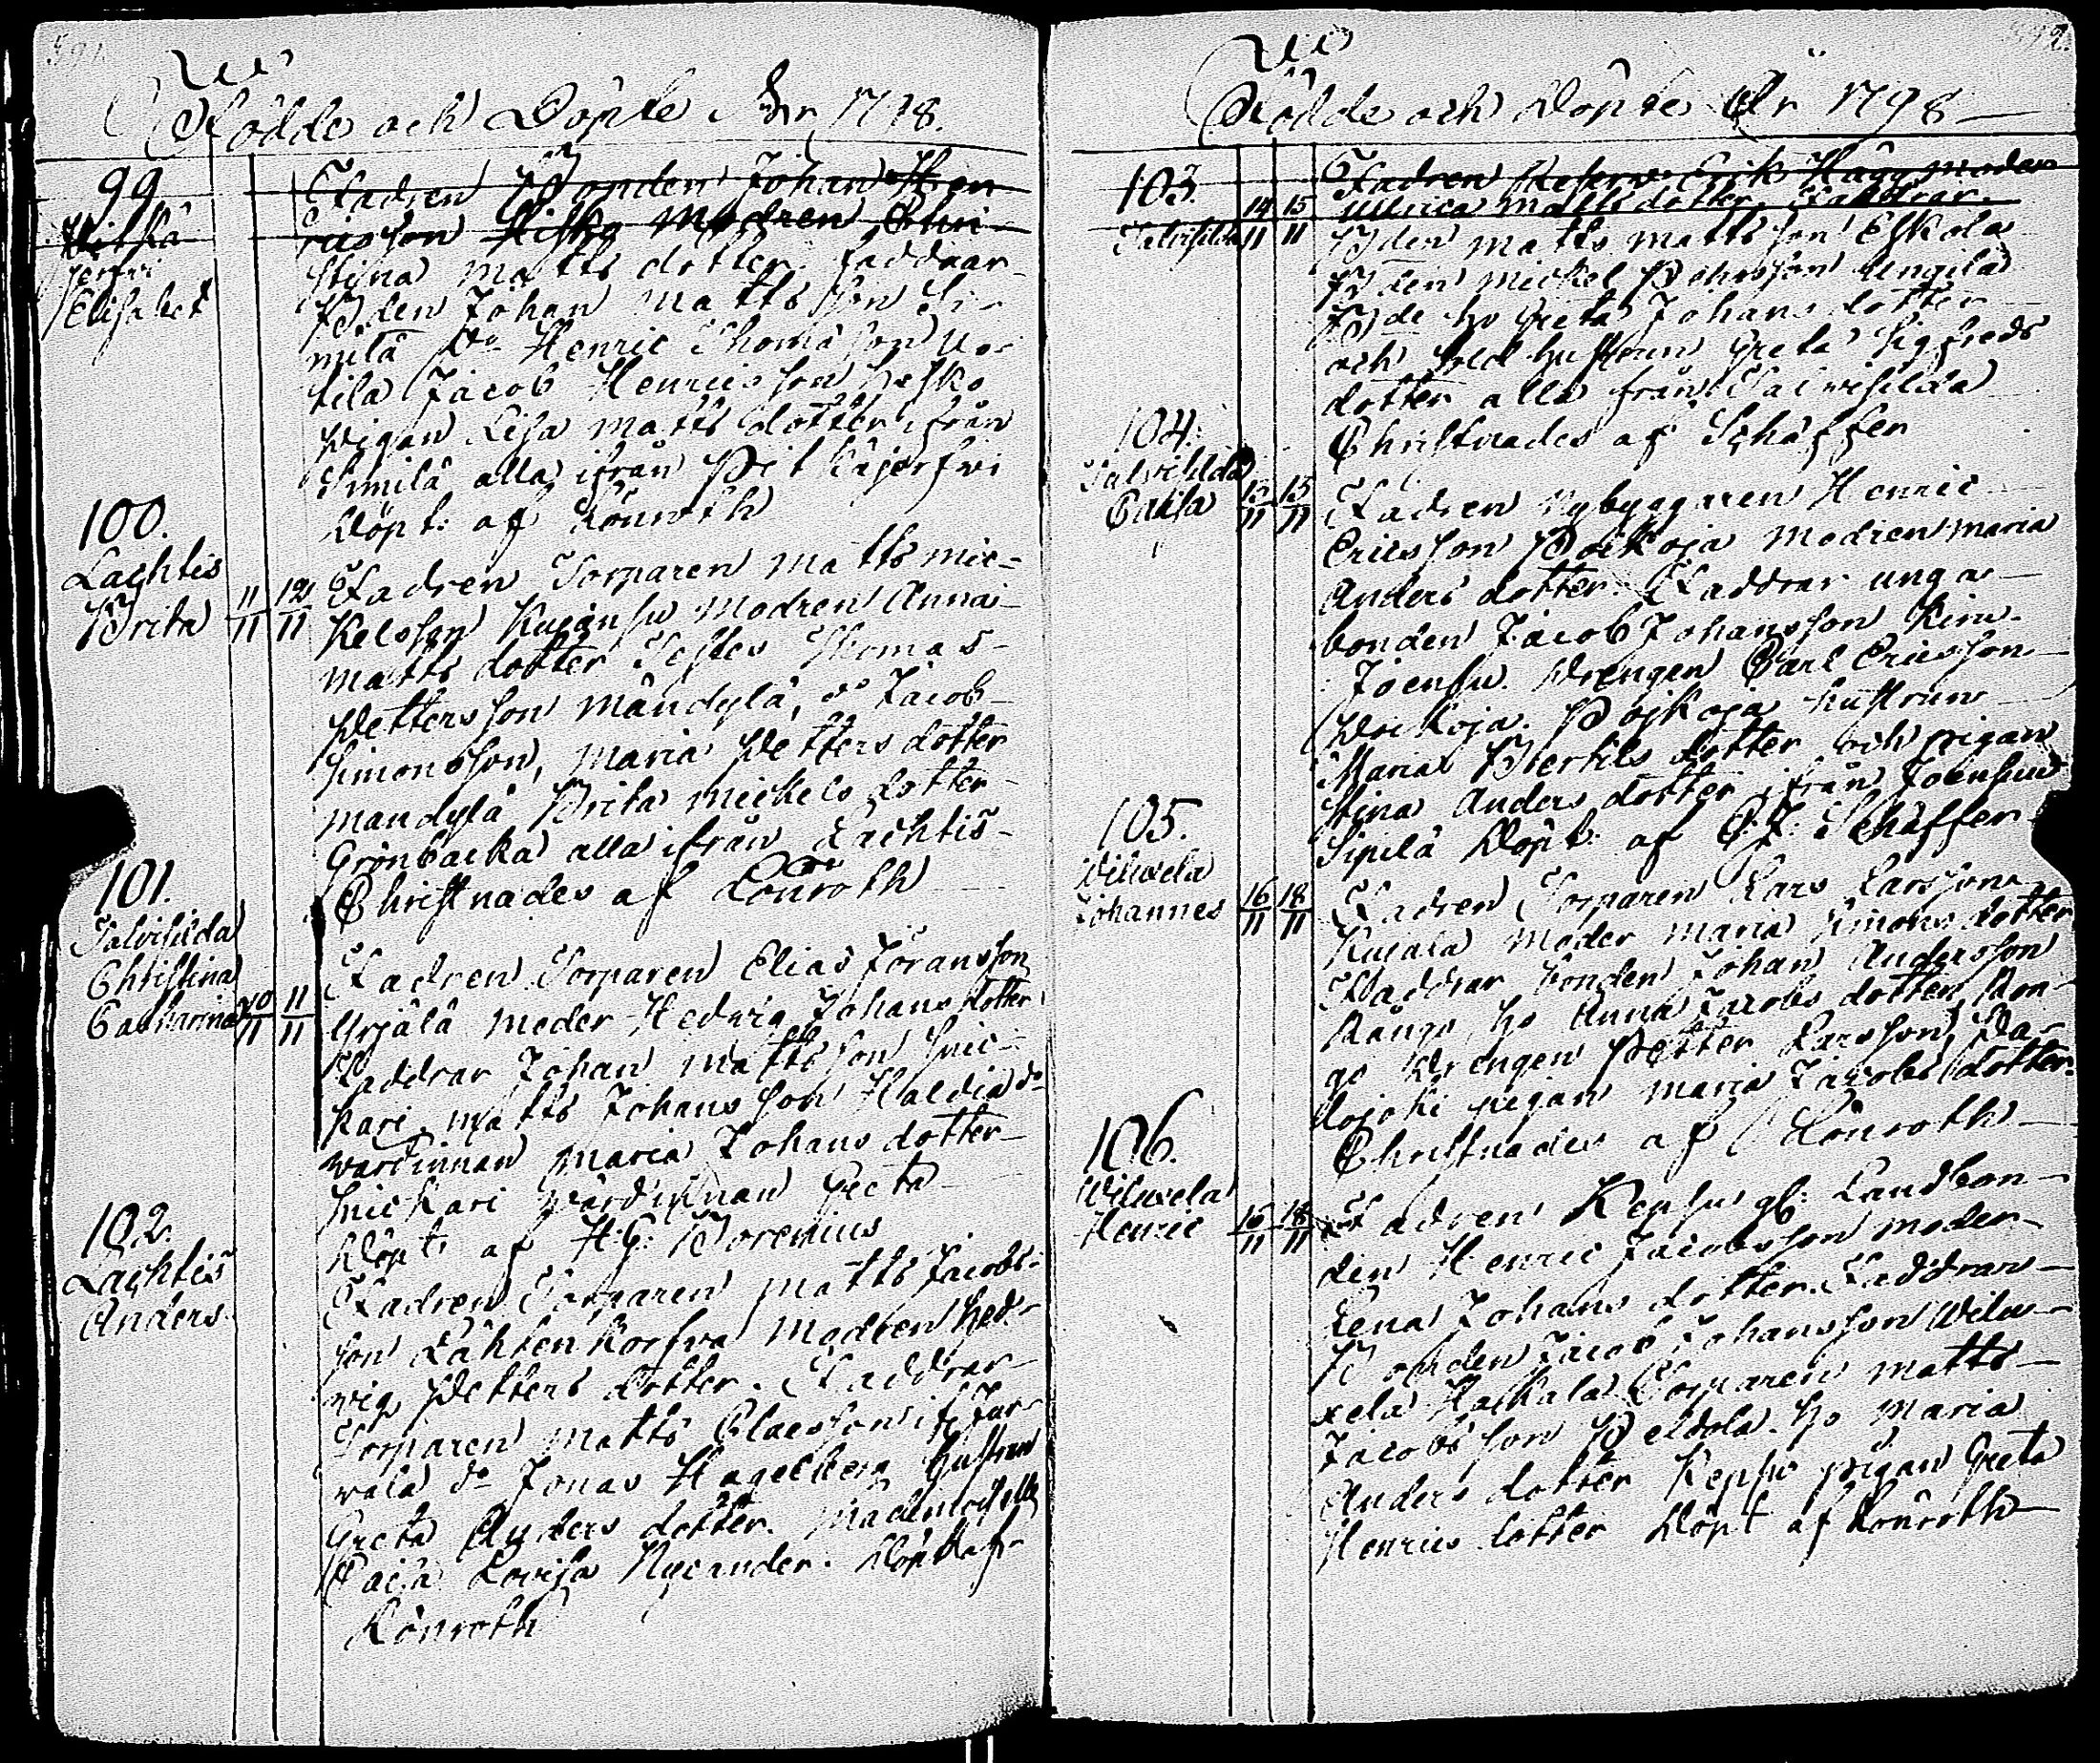 Födde och Döpte År 1798.
99
Pitkä
jerfvi
Elisabet
Fadren Bonden Johan Hen
ricsson Hisko Modren Chri
stina Matts dotter. Faddrar
B.den Johan Matts son Si
milä Do Henric Thomasson Uo
tila Jacob Henricsson Hesko
Pigan Lisa Matts dotter ifrån
Similä alla ifrån Pitkäjerfvi
Döpt: af Lönroth
100.
Lachtis
Brita 11/11 12/11
Fadren Torparen Matts Mic
kelsson Kujansu Modren Anna
Matts dotter Testes Thomas
Pettersson Mändylä, do Jacob
Simonsson, Maria Petters dotter
Mandylä Brita Mickels dotter
Grönbacka alla ifrån Lachtis
Christnades af Lönroth
101.
Salvisilda
Christina
Catharina 10/11 11/11
Fadren Torparen Elias Jöransson
Yrjälä Moder Hedvig Johans dotter
Faddrar Johan Matts son Snic
kari Matts Johans son Haldia do
wärdinnan Maria Johans dotter
Snickari wärdinnan Greta
Döpt af H.G. Borenius
102.
Lachtis
Anders
Fadren Torparen Matts Jacobs
son Lähtenkorfva Modren Hed
vig Petters dotter. Faddrar
Torparen Matts Claesson if Jär
välä do Jonas Hagelberg hustrun
Greta Anders dotter. Mademoiselle
Caisa Lovisa Nycander. Döpt af
Lönroth
Födde och Döpte År 1798
103. 14/11 15/11
Salvisilda
Fadren Reserv Erik Hägg Moder
Ullrica Matts dotter. Faddrar.
B.den Matts Matts son Eskola
B.den Mickel son Ungila
B.de ho Greta Johans dotter
och Sold hustrun Greta Sigfreds
dotter alla från Salvisilda
Christnades af Schäffer
104.
Salvisilda
Caisa 13/11 15/11
Fadren Nybyggaren Henric
Ericsson Poikoja Modren Maria
Anders dotter. Faddrar unga
bonden Jacob Johansson
Joensu. Drengen Carl Ericsson
Poikoja. Pojkoja hustrun
Maria Bertils dotter och pigan
Stina Anders dotter ifrån Joensuu
Sipilä Döpt: af C.J. Schäffer
105.
Viluxela
Johannes 16/11 18/11
Fadren Torparen Lars Larsson
Kujala Moder Maria Simons dotter
Faddrar bonden Johan Andersson
Rångo, ho Anna Jacobs dotter Ron
go Drengen Petter Larsson, Pa
lojoki pigan Maria Jacobs dotter
Christnades af Lönroth
106.
Viluxela
Henric 16/11 18/11
Fadren Kepsu gl: Landbon
den Henric Jacobsson Moder
Lena Johans dotter. Faddrar
Bonden Jacob Johansson Vilu
xela Haikala Torparen Matts
Jacobs son Peldola. ho Maria
Anders dotter Kepsu pigan Greta
Henrics dotter Döpt af Lönroth